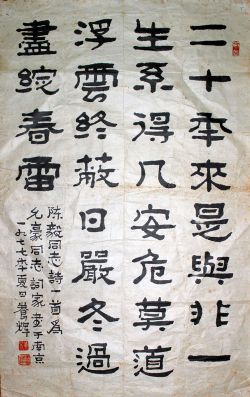 二十年來是與非一
生系得几安危莫道
浮雲終蔽日嚴冬過
盡綻春雷
陳毅同志詩一首爲
允豪同志詞家書于南京
一九七七年夏日